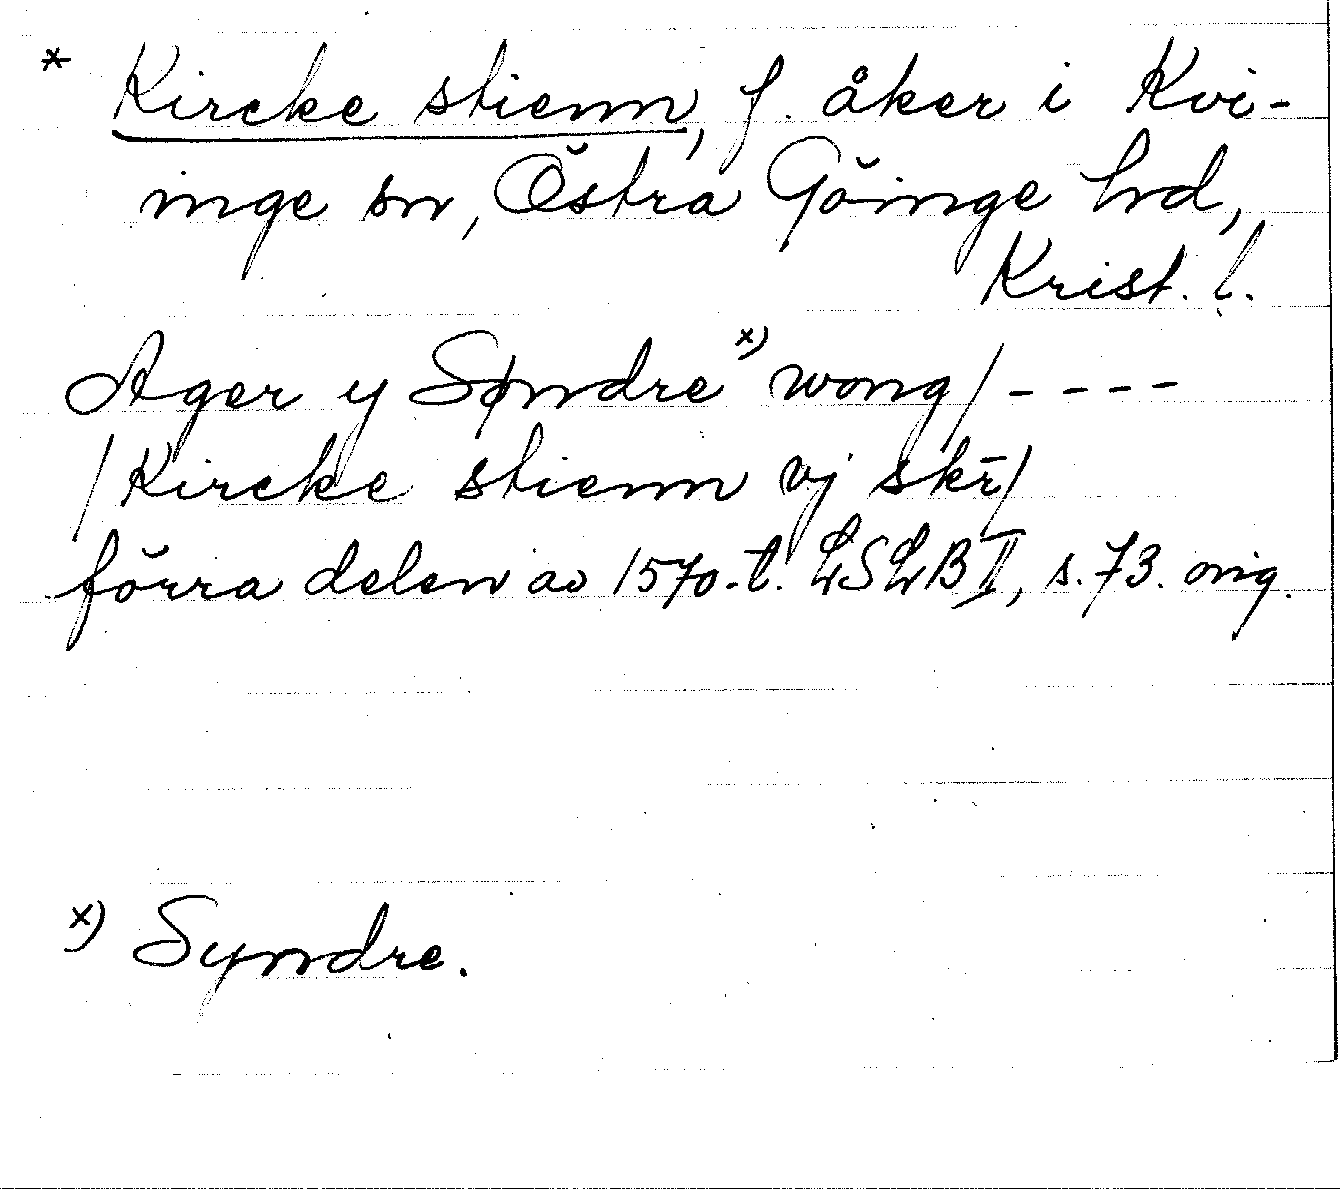 * Kircke stienn, f. åker i Kvi-
inge sn, Östra Göinge hd,
Krist. l.
Ager y Søndre x) wong/ - - - -
/Kircke stienn vj skr̄/
förra delen av 1570-t. LSLB II, s. 73. orig.
x) Syndre.